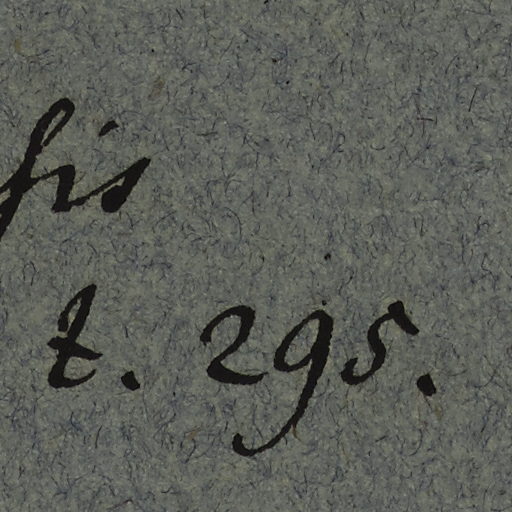 sis
t. 295.